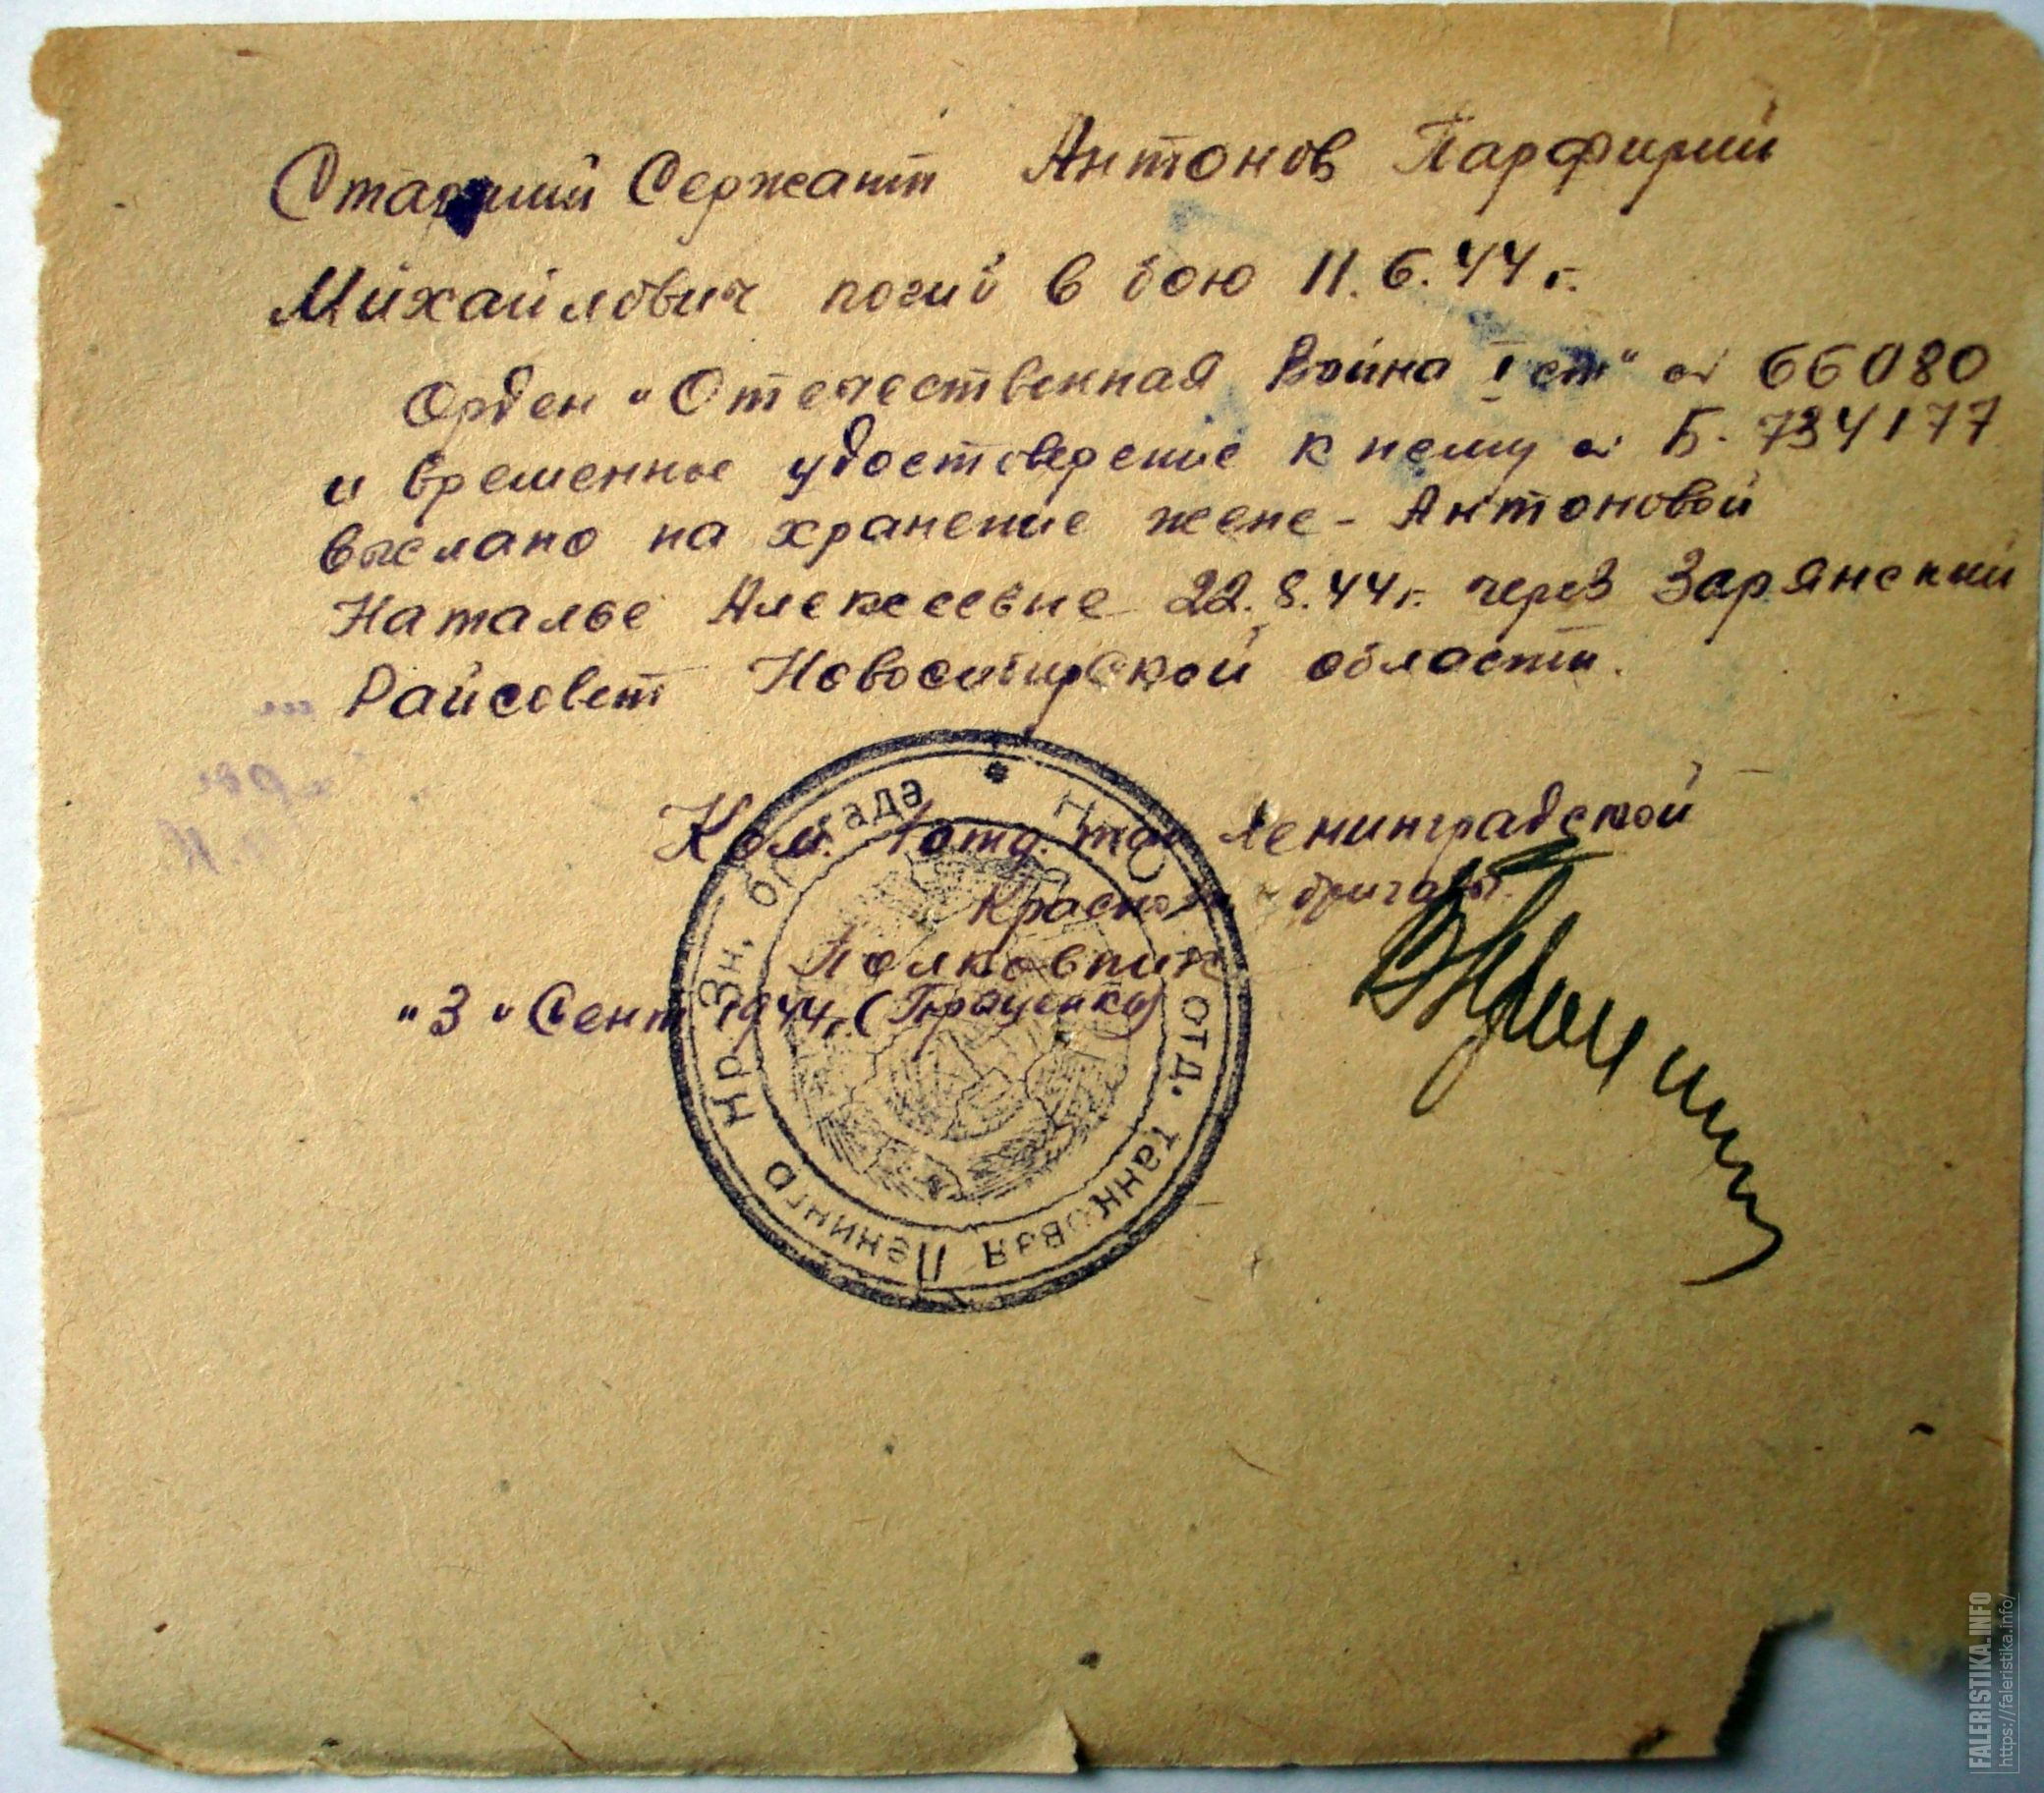 Старший Сержант Антонов Парфирий
Михайлович погиб в бою 11.6.44 г.
Орден "Отечественная Война I ст" № 66080
и временное удостоверение к нему № Б. 734177
выслано на хранение жене - Антоновой
Наталье Алексеевне 22.8.44 г. через Зарянский
Райсовет Новосибирской области.
Ком. 1 отд. тан Ленинградской
Красно бригады.
Полковник
"3" Сент 1944 г. (Проценко)
* НКО 1 отд. танковая Ленингр Кр. Зн. бригада
FALERISTIKA.INFO
https://faleristika.info/